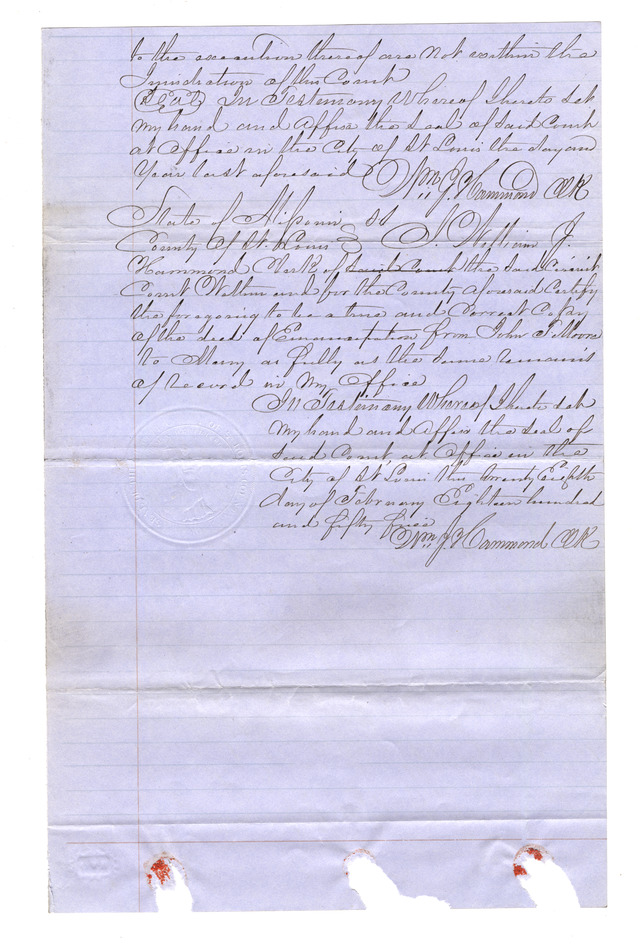 to the execution thereof are not within the
Jurisdiction of this Court
(Seal) In Testimony Whereof I hereto Set
my hand and affix the Seal of Said Court
at Office in the City of St Louis the day and
Year last aforesaid Wm J Hammond Clk
State of Missouri SS
County of St. Louis I, William J.
Hammond Clerk of Said Court the Said Circuit
Court Within and for the County aforesaid Certify
the foregoing to be a true and Correct Copy
of the deed of Emancipation from John T Moore
to Mary as fully as the Same remains
of record in my Office
In Testimony Whereof I hereto Set
my hand and affix the Seal of
Said Court, at Office in the
City of St Louis this twenty Eighth
day of February Eighteen hundred
and fifty five
Wm J Hammond Clk